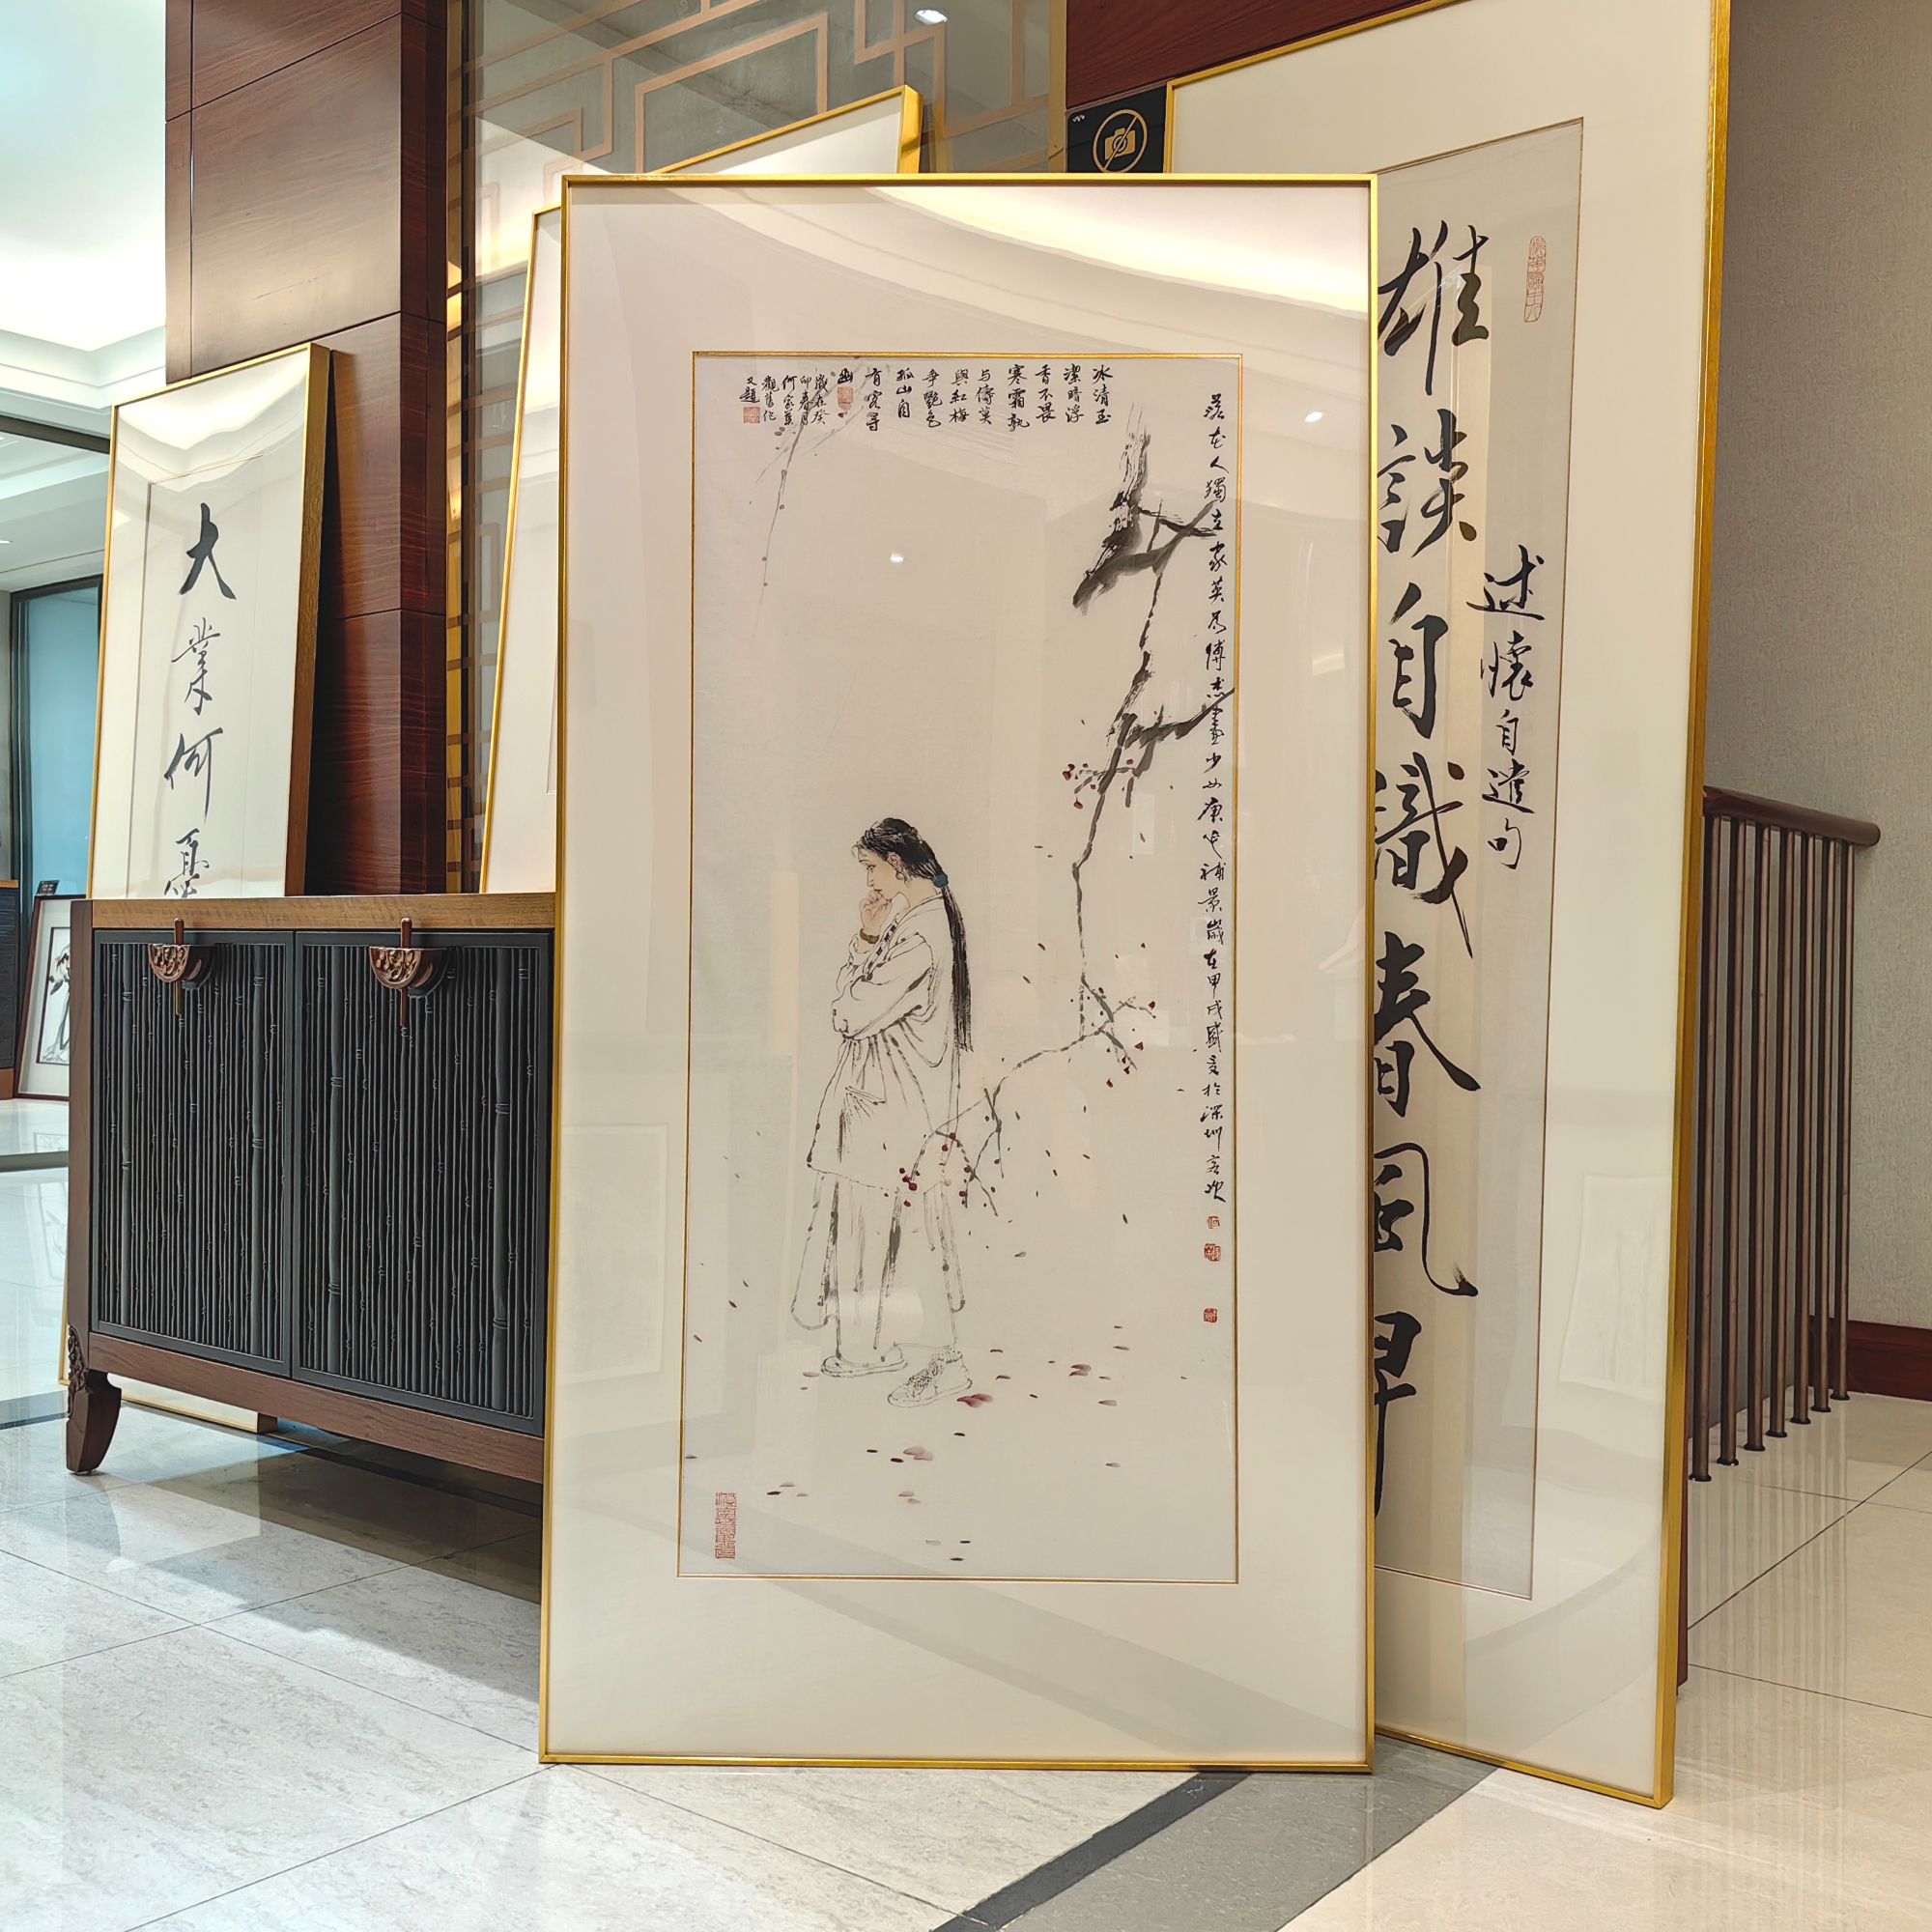 大業何
冰清玉
潔暗浮
香不畏
寒霜孰
与儔莫
與紅梅
爭艷色
孤山自
有客尋
幽
歲在癸
卯春月
何家英
觀舊作
又題
落花人獨立家英為傅杰畫少女庚年補景歲在甲戌盛夏於深圳客次
述懷自遣句
雄談自識春風